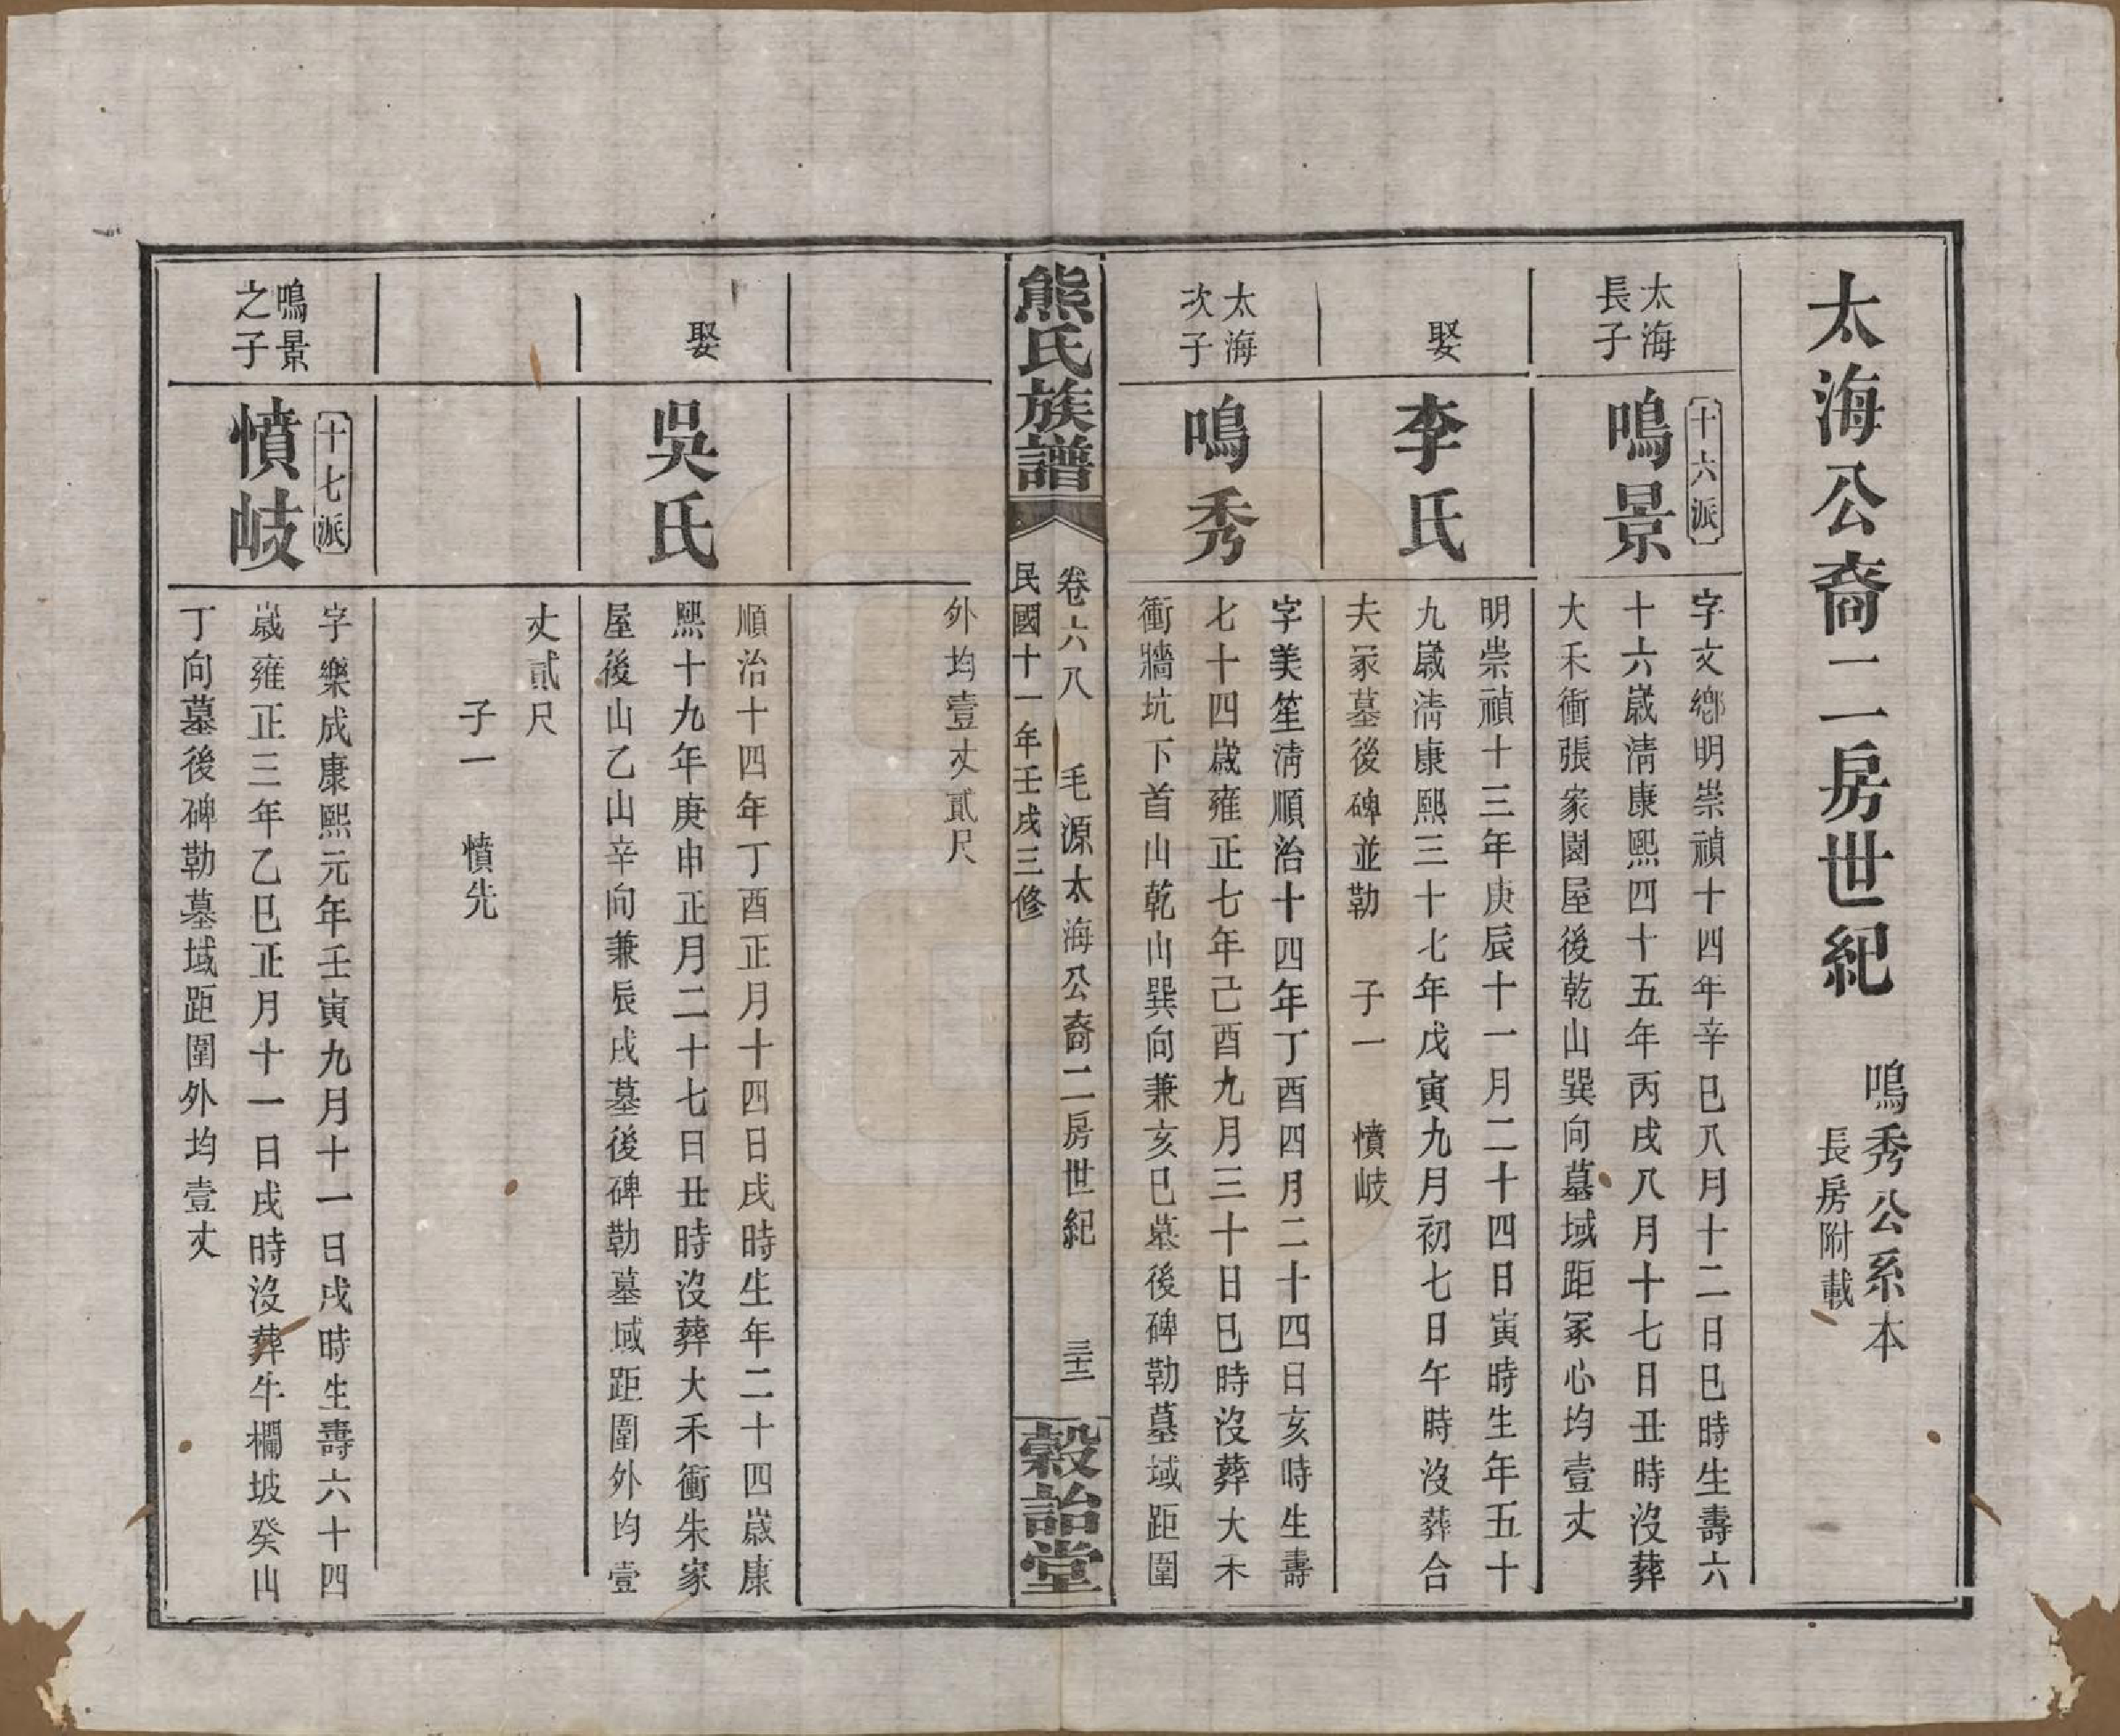 太海公裔二房世紀
鳴秀公系本
長房附載
太海
長子
十六派
鳴景
字文鄉明崇禎十四年辛巳八月十二日巳時生壽六
十六歲淸康熙四十五年丙戌八月十七日丑時沒葬
大禾衝張家園屋後乾山巽向墓域距冢心均壹丈
娶
李氏
明崇禎十三年庚辰十一月二十四日寅時生年五十
九歲淸康熙三十七年戊寅九月初七日午時沒葬合
夫冢墓後碑並勒 子一 憤岐
太海
次子
鳴秀
字美笙淸順治十四年丁酉四月二十四日亥時生壽
七十四歲雍正七年己酉九月三十日巳時沒葬大禾
衝牆坑下首山乾山巽向兼亥巳墓後碑勒墓域距圍
外均壹丈貳尺
熊氏族譜
卷六八 毛源太海公裔二房世紀 三十三
民國十一年壬戌三修
穀詒堂
娶
吳氏
順治十四年丁酉正月十四日戌時生年二十四歲康
熙十九年庚申正月二十七日丑時沒葬大禾衝朱家
屋後山乙山辛向兼辰戌墓後碑勒墓域距圍外均壹
丈貳尺
子一 憤先
鳴景
之子
十七派
憤岐
字樂成康熙元年壬寅九月十一日戌時生壽六十四
歲雍正三年乙巳正月十一日戌時沒葬牛欄坡癸山
丁向墓後碑勒墓域距圍外均壹丈